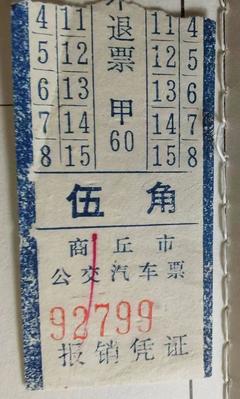 4 11 不 11 4
5 12 退 12 5
6 13 票 13 6
7 14 甲 14 7
8 15 60 15 8
伍角
商丘市
公交汽车票
92799
报销凭证